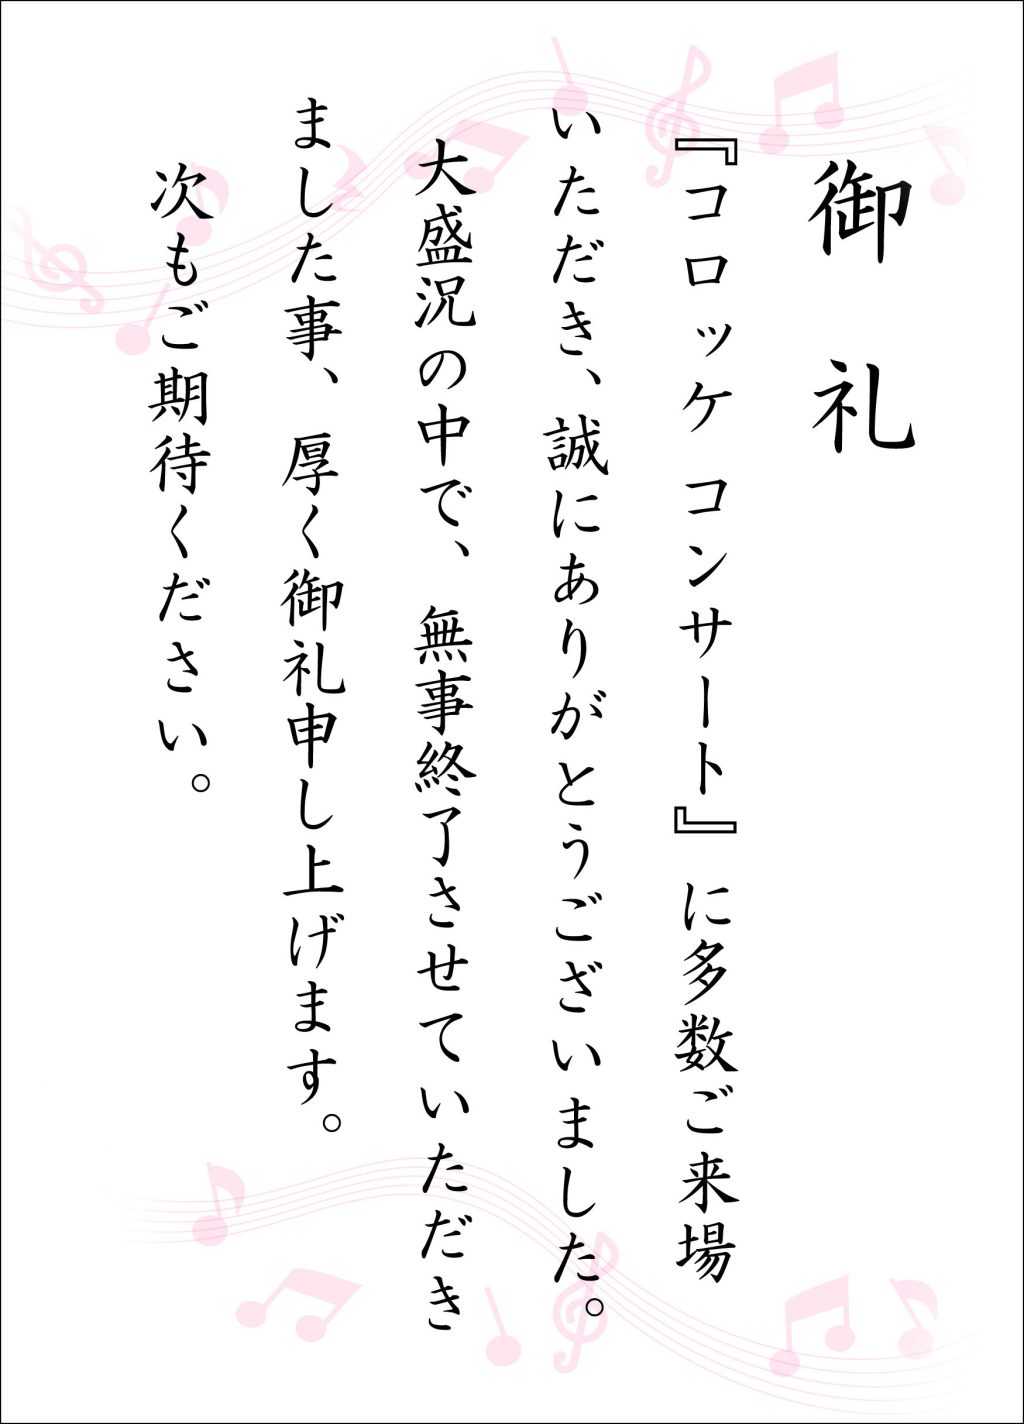 御礼
『コロッケ コンサート』に多数ご来場
いただき、誠にありがとうございました。
大盛況の中で、無事終了させていただき
ました事、厚く御礼申し上げます。
次もご期待ください。